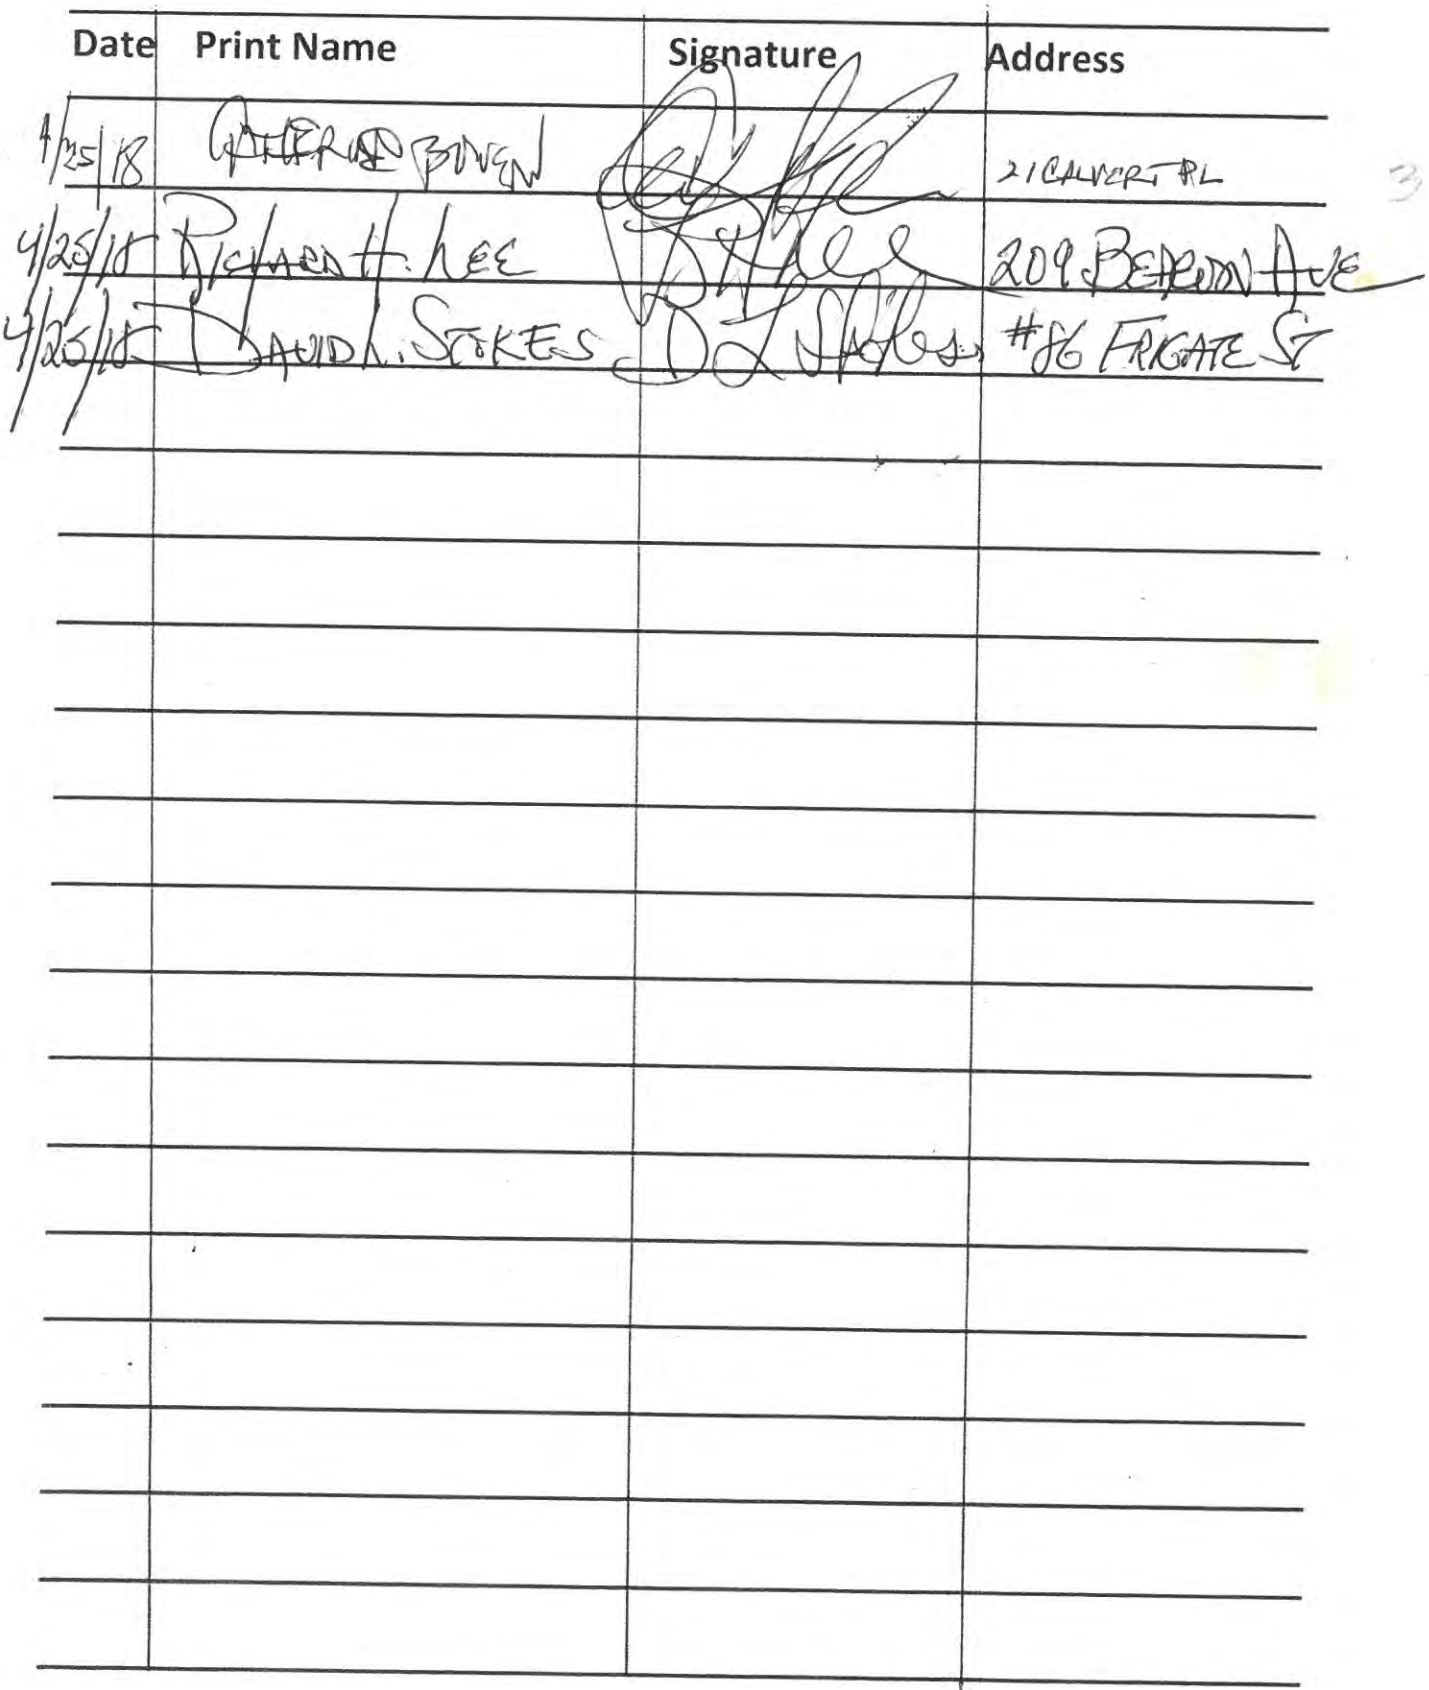 Date Print Name Signature Address
4/25/18 CATHERINE BOWEN 21 CALVERT PL 3
4/25/18 RICHARD H. LEE 209 BEACON AVE
4/25/18 DAVID L. STOKES D L Stokes #86 FRIGATE ST